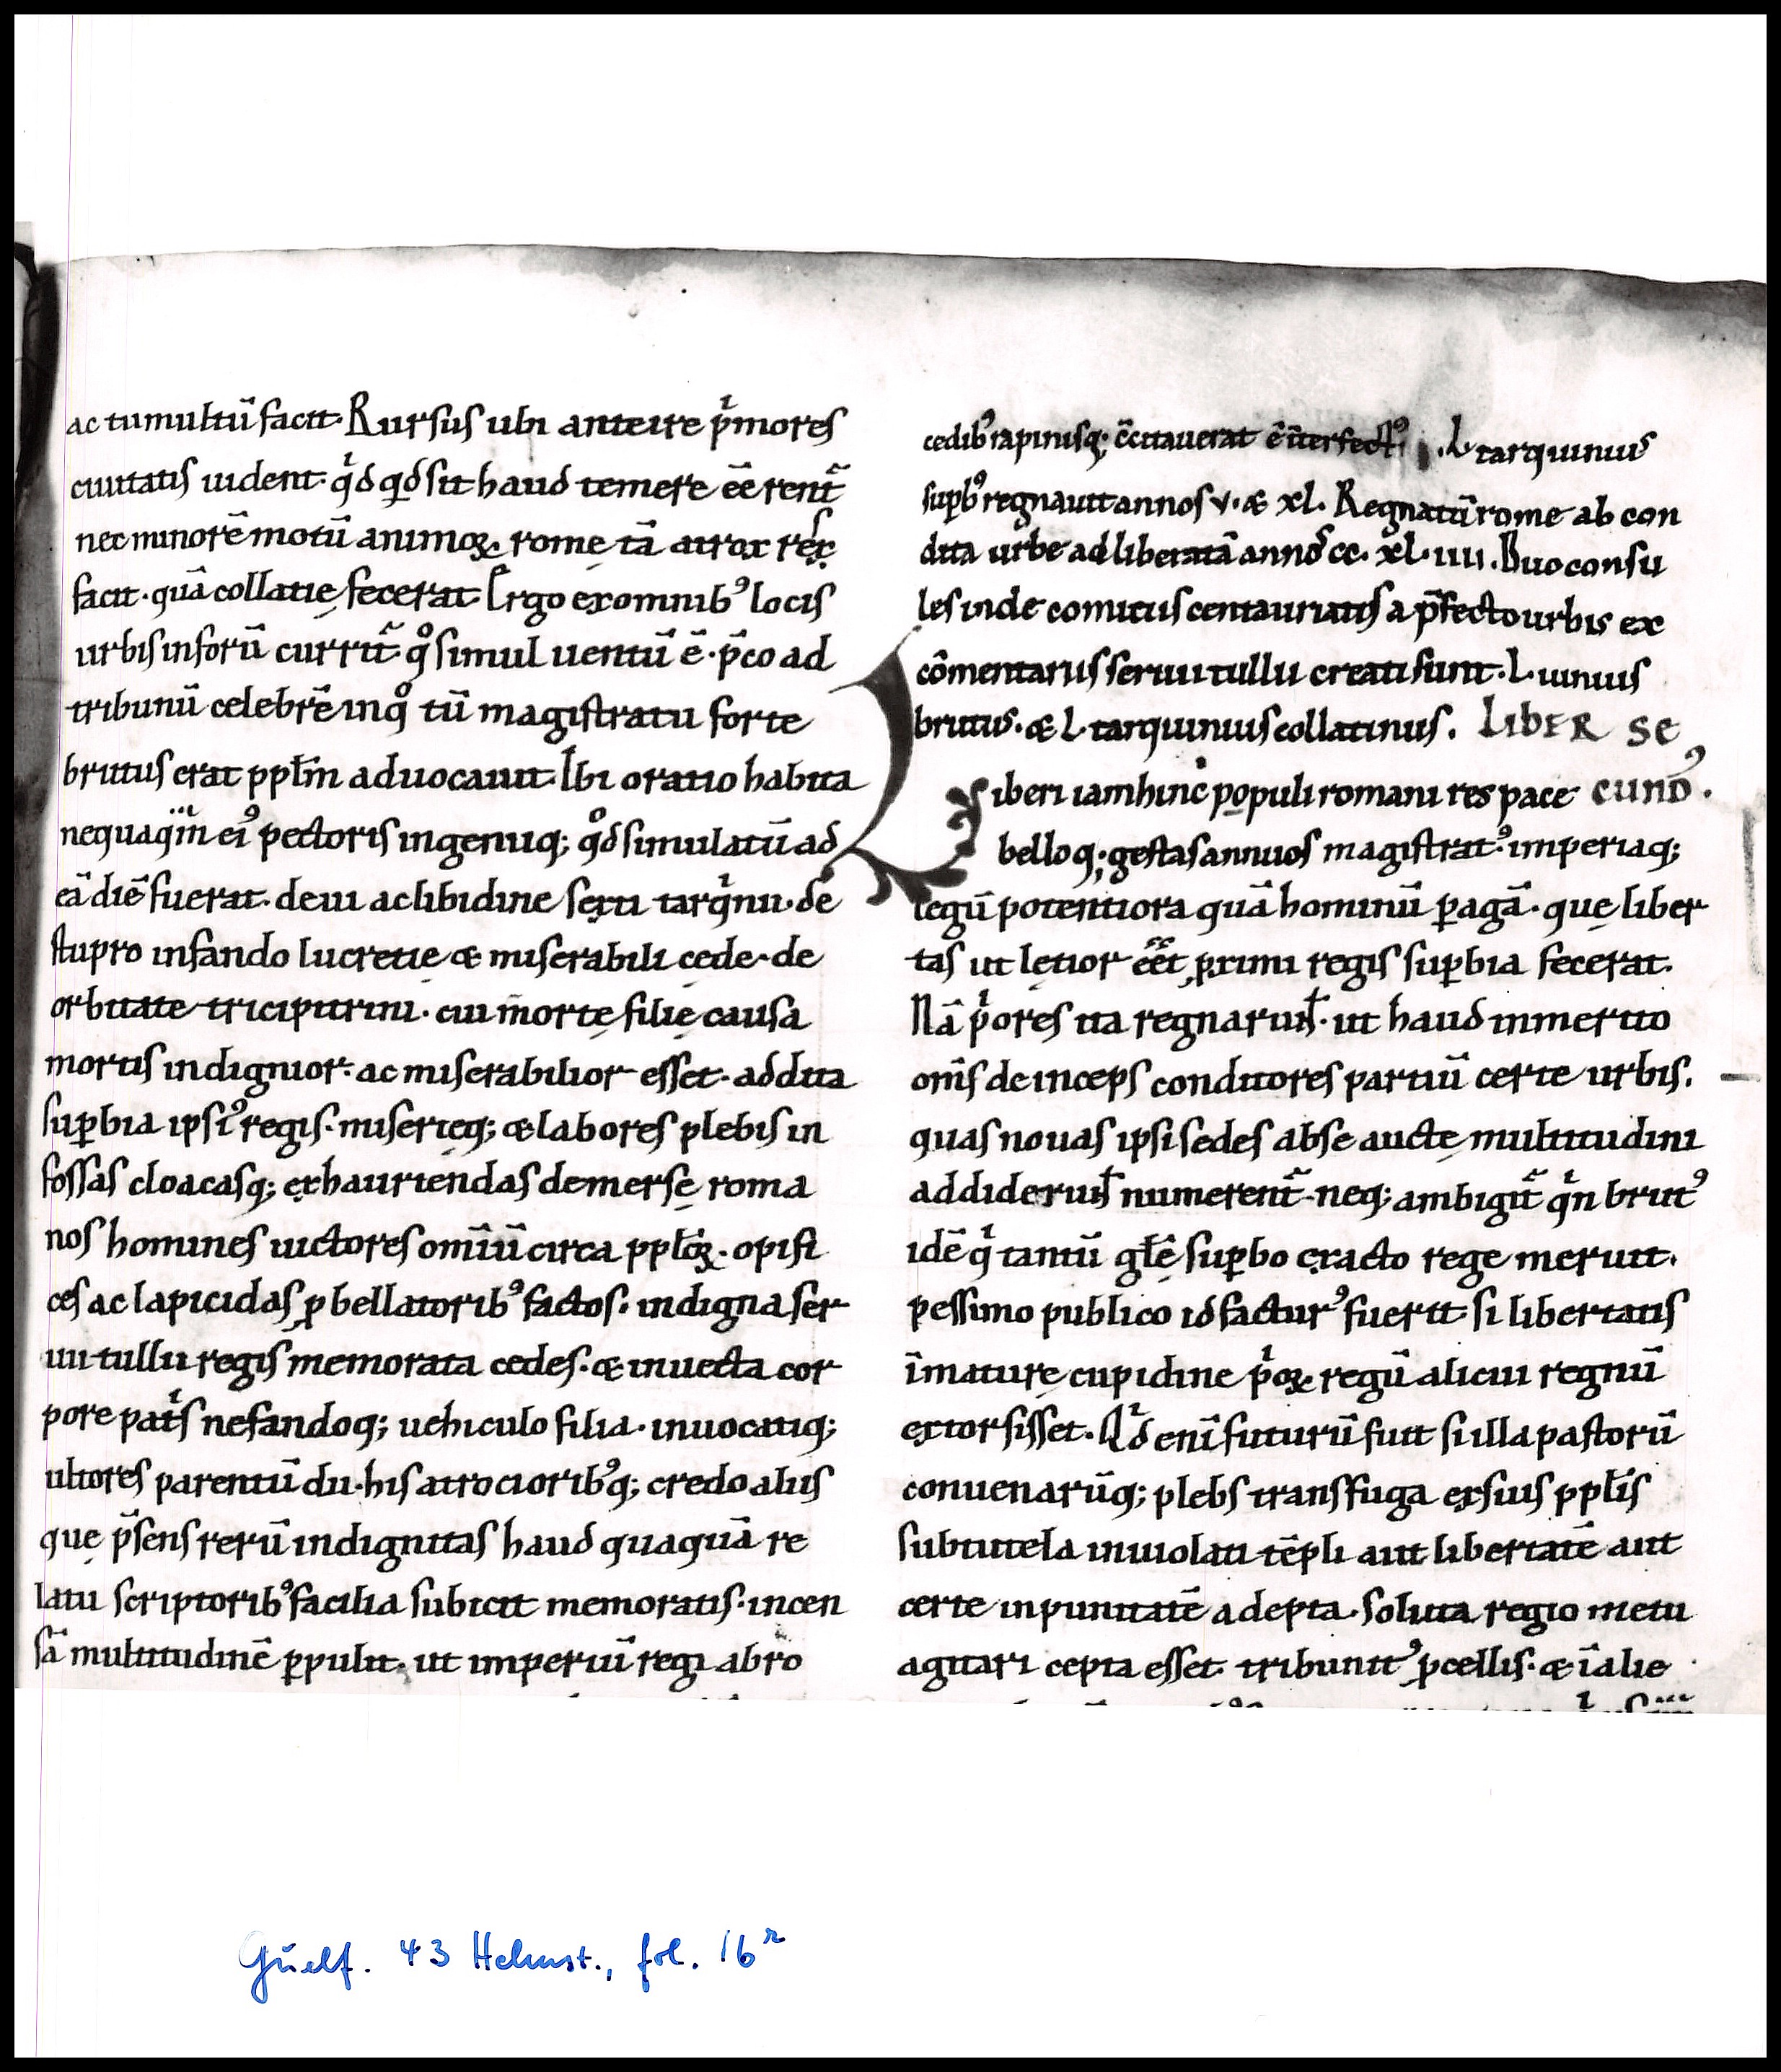 ac tumultū facit. Rursus ubi anteire p̍mores
ciuitatis uident. q̍d qͥd sit haud temere eē̄ rent᷑
nec minorē motū animoꝝ rome̜ tā atrox res
facit. quā collatie̜ fecerat. Ergo ex omnib⁹ locis
urbis in forū currit᷑ q̊ simul uentū ē. p̄co ad
tribunū celebrē inq̊ tū magistratu forte
brutus erat pplm̄ aduocauit. Ibi oratio habita
nequaq̈m ei⁹ pectoris ingeniiq; q̊d simulatū ad
eā diē fuerat. de ui ac libidine sexti tarq̍nii. de
stupro infando lucretie̜ & miserabili ce̜de. de
orbitate tricipitini. cui morte̜ filie̜ causa
mortis indignior. ac miserabilior esset. addita
suꝑbia ipsi⁹ regis. miserie̜q; & labores plebis in
fossas cloacasq; exhauriendas demerse̜ roma
nos homines uictores omīū circa ppl̄oꝝ. opifi
ces ac lapicidas ꝓ bellatorib⁹ factos. indigna ser
uii tullii regis memorata cedes. & inuecta cor
pore pat̍s nefandoq; uehiculo filia. inuocatiq;
ultores parentū dii. his atrociorib⁹q; credo aliis
que̜ p̄sens rerū indignitas haud quaquā re
latu scriptorib⁹ facilia subicit memoratis. incen
sā multitudinē ꝑpulit. ut imperiū regi abro
cedib⁹ rapinisq; c̄citauerat ē īterfect⁹. L tarquinius
suꝑb⁹ regnauit annos v. & xl. Regnatū rome ab con
dita urbe ad liberatā annos cc. xl. iiii. Duo consu
les inde comitiis centauriatis a p̄fecto urbis ex
cōmentariis seruii tullii creati sunt. L. iunius
brutus. & L. tarquinius collatinus. LIBER SE
Liberi iam hinc populi romani res pace CUND⁹.
belloq; gestas annuos magistrat⁹. imperiaq;
legū potentiora quā hominū ꝑagā. que̜ liber
tas ut le̜tior eēt, ꝓximi regis suꝑbia fecerat.
Nā p̍ores ita regnarur̄t. ut haud inmerito
om̄s deinceps conditores partiū certe urbis.
quas nouas ipsi sedes ab se aucte̜ multitudini
addiderur̄t numerent᷑. neq; ambigit᷑ q̍n brut⁹
idē q̍ tantū gl̄e̜ suꝑbo exacto rege meruit.
pessimo publico id factur⁹ fuerit. si libertatis
īmature̜ cupidine p̍oꝝ regū alicui regnū
extorsisset. Q̍d enī futurū fuit si illa pastorū
conuenarūq; plebs transfuga ex suis ppl̄is
sub tutela inuiolati tēpli aut libertatē aut
certe inpunitatē adepta. soluta regio metu
agitari cepta esset tribunit⁹ ꝓcellis. & ī alie
Guelf. 43 Helmst., fol. 16ʳ